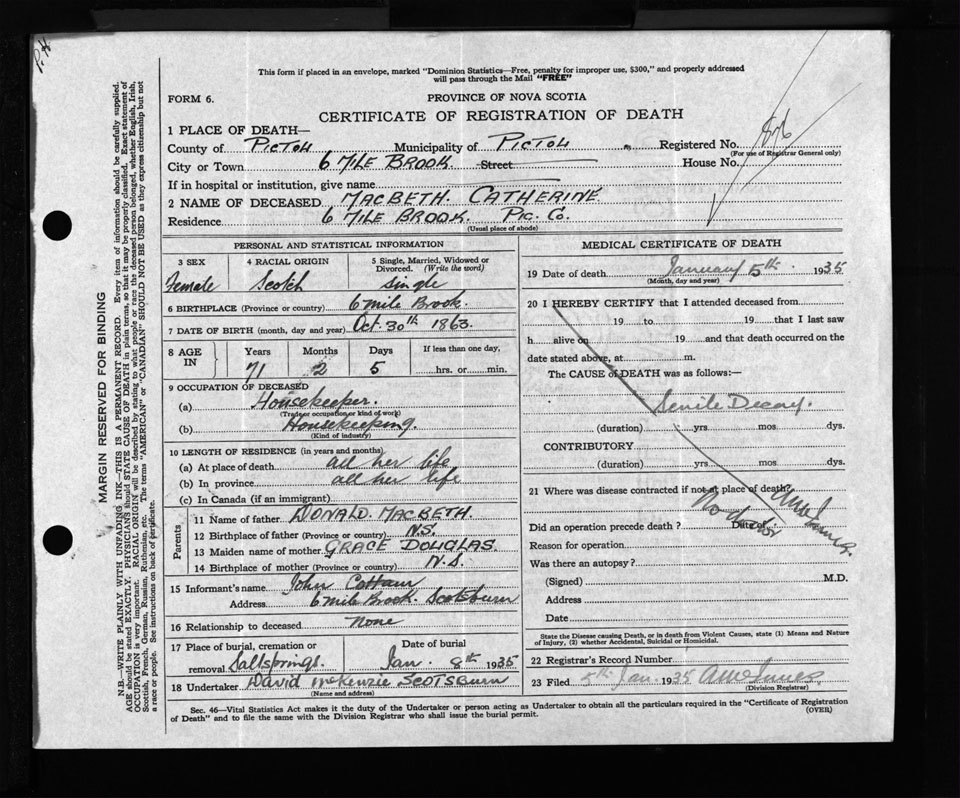 P.H
This form if placed in an envelope, marked "Dominion Statistics—Free, penalty for improper use, $300," and properly addressed
will pass through the Mail "FREE"
FORM 6.
PROVINCE OF NOVA SCOTIA
CERTIFICATE OF REGISTRATION OF DEATH
1 PLACE OF DEATH—
County of PICTOU Municipality of PICTOU Registered No.
(For use of Registrar General only)
City or Town 6 MILE BROOK. Street House No.
If in hospital or institution, give name
2 NAME OF DECEASED MACBETH. CATHERINE
Residence 6 MILE BROOK. PIC. CO.
(Usual place of abode)
PERSONAL AND STATISTICAL INFORMATION
3 SEX 4 RACIAL ORIGIN 5 Single, Married, Widowed or
Divorced. (Write the word)
Female Scotch Single
6 BIRTHPLACE (Province or country) 6 mile Brook.
7 DATE OF BIRTH (month, day and year) Oct. 30th 1863.
8 AGE IN Years Months Days If less than one day,
71 2 5 hrs. or min.
9 OCCUPATION OF DECEASED
(a) Housekeeper.
(Trade or occupation or kind of work)
(b) Housekeeping.
(Kind of industry)
10 LENGTH OF RESIDENCE (in years and months)
(a) At place of death all her life
(b) In province all her life
(c) In Canada (if an immigrant)
Parents
11 Name of father DONALD. MACBETH
12 Birthplace of father (Province or country) N.S.
13 Maiden name of mother GRACE DOUGLAS.
14 Birthplace of mother (Province or country) N.S.
15 Informant's name John
Address 6 mile Brook. Scotsburn
16 Relationship to deceased None
17 Place of burial, cremation or Date of burial
removal Saltsprings. Jan. 8th 1935
18 Undertaker David McKenzie SCOTSBURN
(Name and address)
MEDICAL CERTIFICATE OF DEATH
19 Date of death January 5th. 1935
(Month, day and year)
20 I HEREBY CERTIFY that I attended deceased from
19 to 19 that I last saw
h alive on 19 and that death occurred on the
date stated above, at m.
The CAUSE of DEATH was as follows:—
Senile Decay.
(duration) yrs mos dys.
CONTRIBUTORY
(duration) yrs mos dys.
21 Where was disease contracted if not at place of death?
No doctor
Did an operation precede death? Date of
Reason for operation
Was there an autopsy?
(Signed) M.D.
Address
Date
State the Disease causing Death, or in death from Violent Causes, state (1) Means and Nature
of Injury, (2) whether Accidental, Suicidal or Homicidal.
22 Registrar's Record Number
23 Filed 5th Jan. 1935
(Division Registrar)
Sec. 46—Vital Statistics Act makes it the duty of the Undertaker or person acting as Undertaker to obtain all the particulars required in the "Certificate of Registration
of Death" and to file the same with the Division Registrar who shall issue the burial permit. (OVER)
MARGIN RESERVED FOR BINDING
N.B.—WRITE PLAINLY WITH UNFADING INK—THIS IS A PERMANENT RECORD. Every item of information should be carefully supplied.
AGE should be stated EXACTLY. PHYSICIANS should STATE CAUSE OF DEATH in plain terms, so that it may be properly classified. Exact statement of
OCCUPATION is very important. RACIAL ORIGIN will be described by stating to what people or race the deceased person belonged, whether English, Irish,
Scottish, French, German, Russian, Ruthenian, etc. The terms "AMERICAN" or "CANADIAN" SHOULD NOT BE USED as they express citizenship but not
a race or people. See instructions on back of certificate.